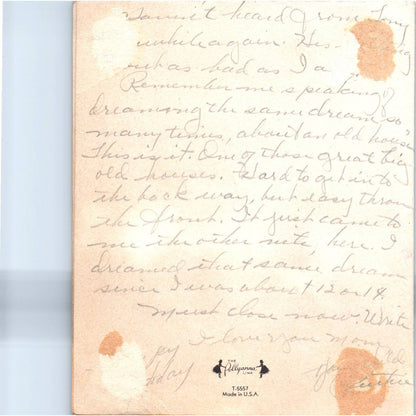 Haven't heard from Tony
while again. He's
not as bad as I a
Remember me speaking of
dreaming the same dream so
many times, about an old house
This is it. One of those great big
old houses. Hard to get into
the back way, but easy throu
the front. It just came to
me the other nite, here. I
dreamed that same dream
since I was about 12 or 14.
Must close now. Write
I love you Mom
THE
Allyanna
LINE
T-5557
Made in U.S.A.